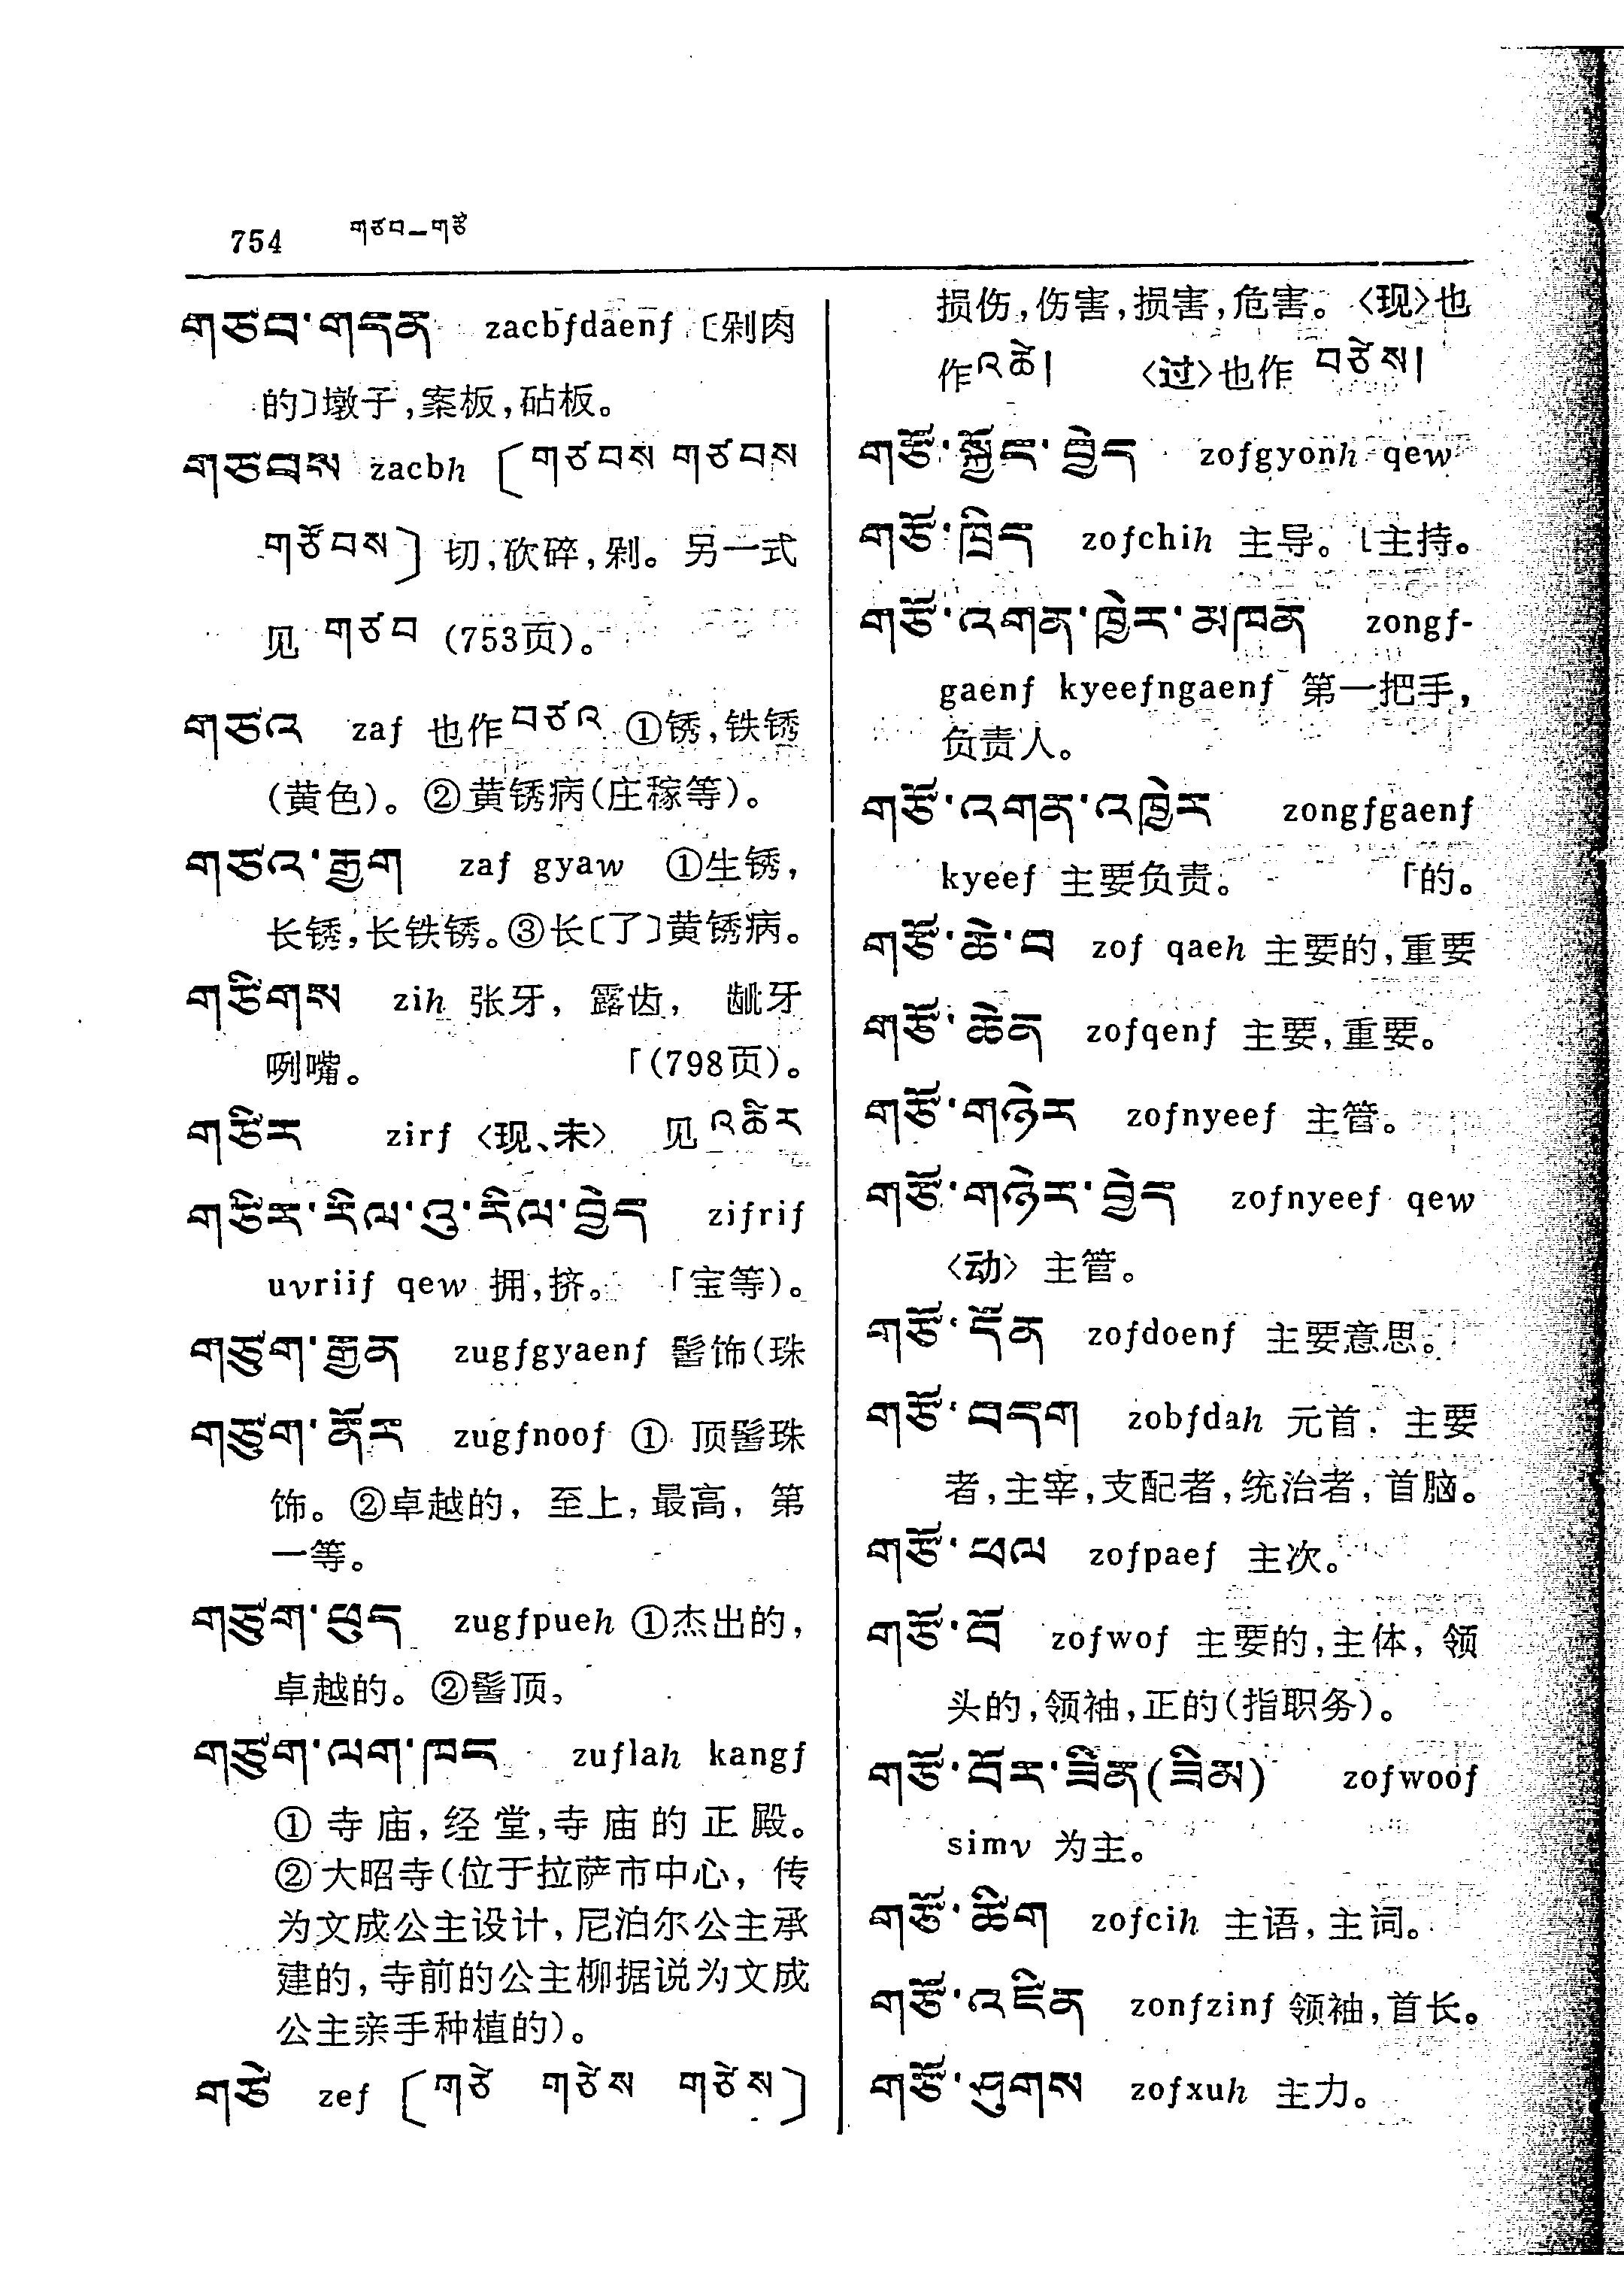 754 གཙབ—གཙོ
གཙབ་གདན zacbfdaenf 〔剁肉
的〕墩子,案板,砧板。
གཙབས zacbh 〔གཙབས གཙབས
གཙོབས〕 切,砍碎,剁。另一式
见 གཙབ (753页)。
གཙའ zaf 也作བཙའ ①锈,铁锈
(黄色)。②黄锈病(庄稼等)。
གཙའ་རྒྱག zaf gyaw ①生锈,
长锈,长铁锈。③长〔了〕黄锈病。
གཙིགས zih 张牙, 露齿, 龇牙
咧嘴。 「(798页)。
གཙིར zirf 〈现、未〉 见འཚིར
གཙིར་རིལ་འུ་རིལ་བྱེད zifrif
uvriif qew 拥,挤。 「宝等)。
གཙུག་རྒྱན zugfgyaenf 髻饰(珠
གཙུག་ནོར zugfnoof ① 顶髻珠
饰。②卓越的, 至上,最高, 第
一等。
གཙུག་ཕུད zugfpueh ①杰出的,
卓越的。②髻顶。
གཙུག་ལག་ཁང zuflah kangf
① 寺庙,经堂,寺庙的正殿。
②大昭寺(位于拉萨市中心, 传
为文成公主设计,尼泊尔公主承
建的,寺前的公主柳据说为文成
公主亲手种植的)。
གཙེ zef 〔གཙེ གཙེས གཙེས〕
损伤,伤害,损害,危害。〈现〉也
作འཚེ། 〈过〉也作 བཙེས།
གཙོ་སྐྱོང་བྱེད zofgyonh qew
གཙོ་ཁྲིད zofchih 主导。⌊主持。
གཙོ་འགན་ཁྱེར་མཁན zongf-
gaenf kyeefngaenf 第一把手,
负责人。
གཙོ་འགན་འཁྱེར zongfgaenf
kyeef 主要负责。 「的。
གཙོ་ཆེ་བ zof qaeh 主要的,重要
གཙོ་ཆེན zofqenf 主要,重要。
གཙོ་གཉེར zofnyeef 主管。
གཙོ་གཉེར་བྱེད zofnyeef qew
〈动〉 主管。
གཙོ་དོན zofdoenf 主要意思。
གཙོ་བདག zobfdah 元首, 主要
者,主宰,支配者,统治者,首脑。
གཙོ་ཕལ zofpaef 主次。
གཙོ་བོ zofwof 主要的,主体, 领
头的,领袖,正的(指职务)。
གཙོ་བོར་ཟིན(ཟིམ) zofwoof
simv 为主。
གཙོ་ཚིག zofcih 主语,主词。
གཙོ་འཛིན zonfzinf 领袖,首长。
གཙོ་ཤུགས zofxuh 主力。